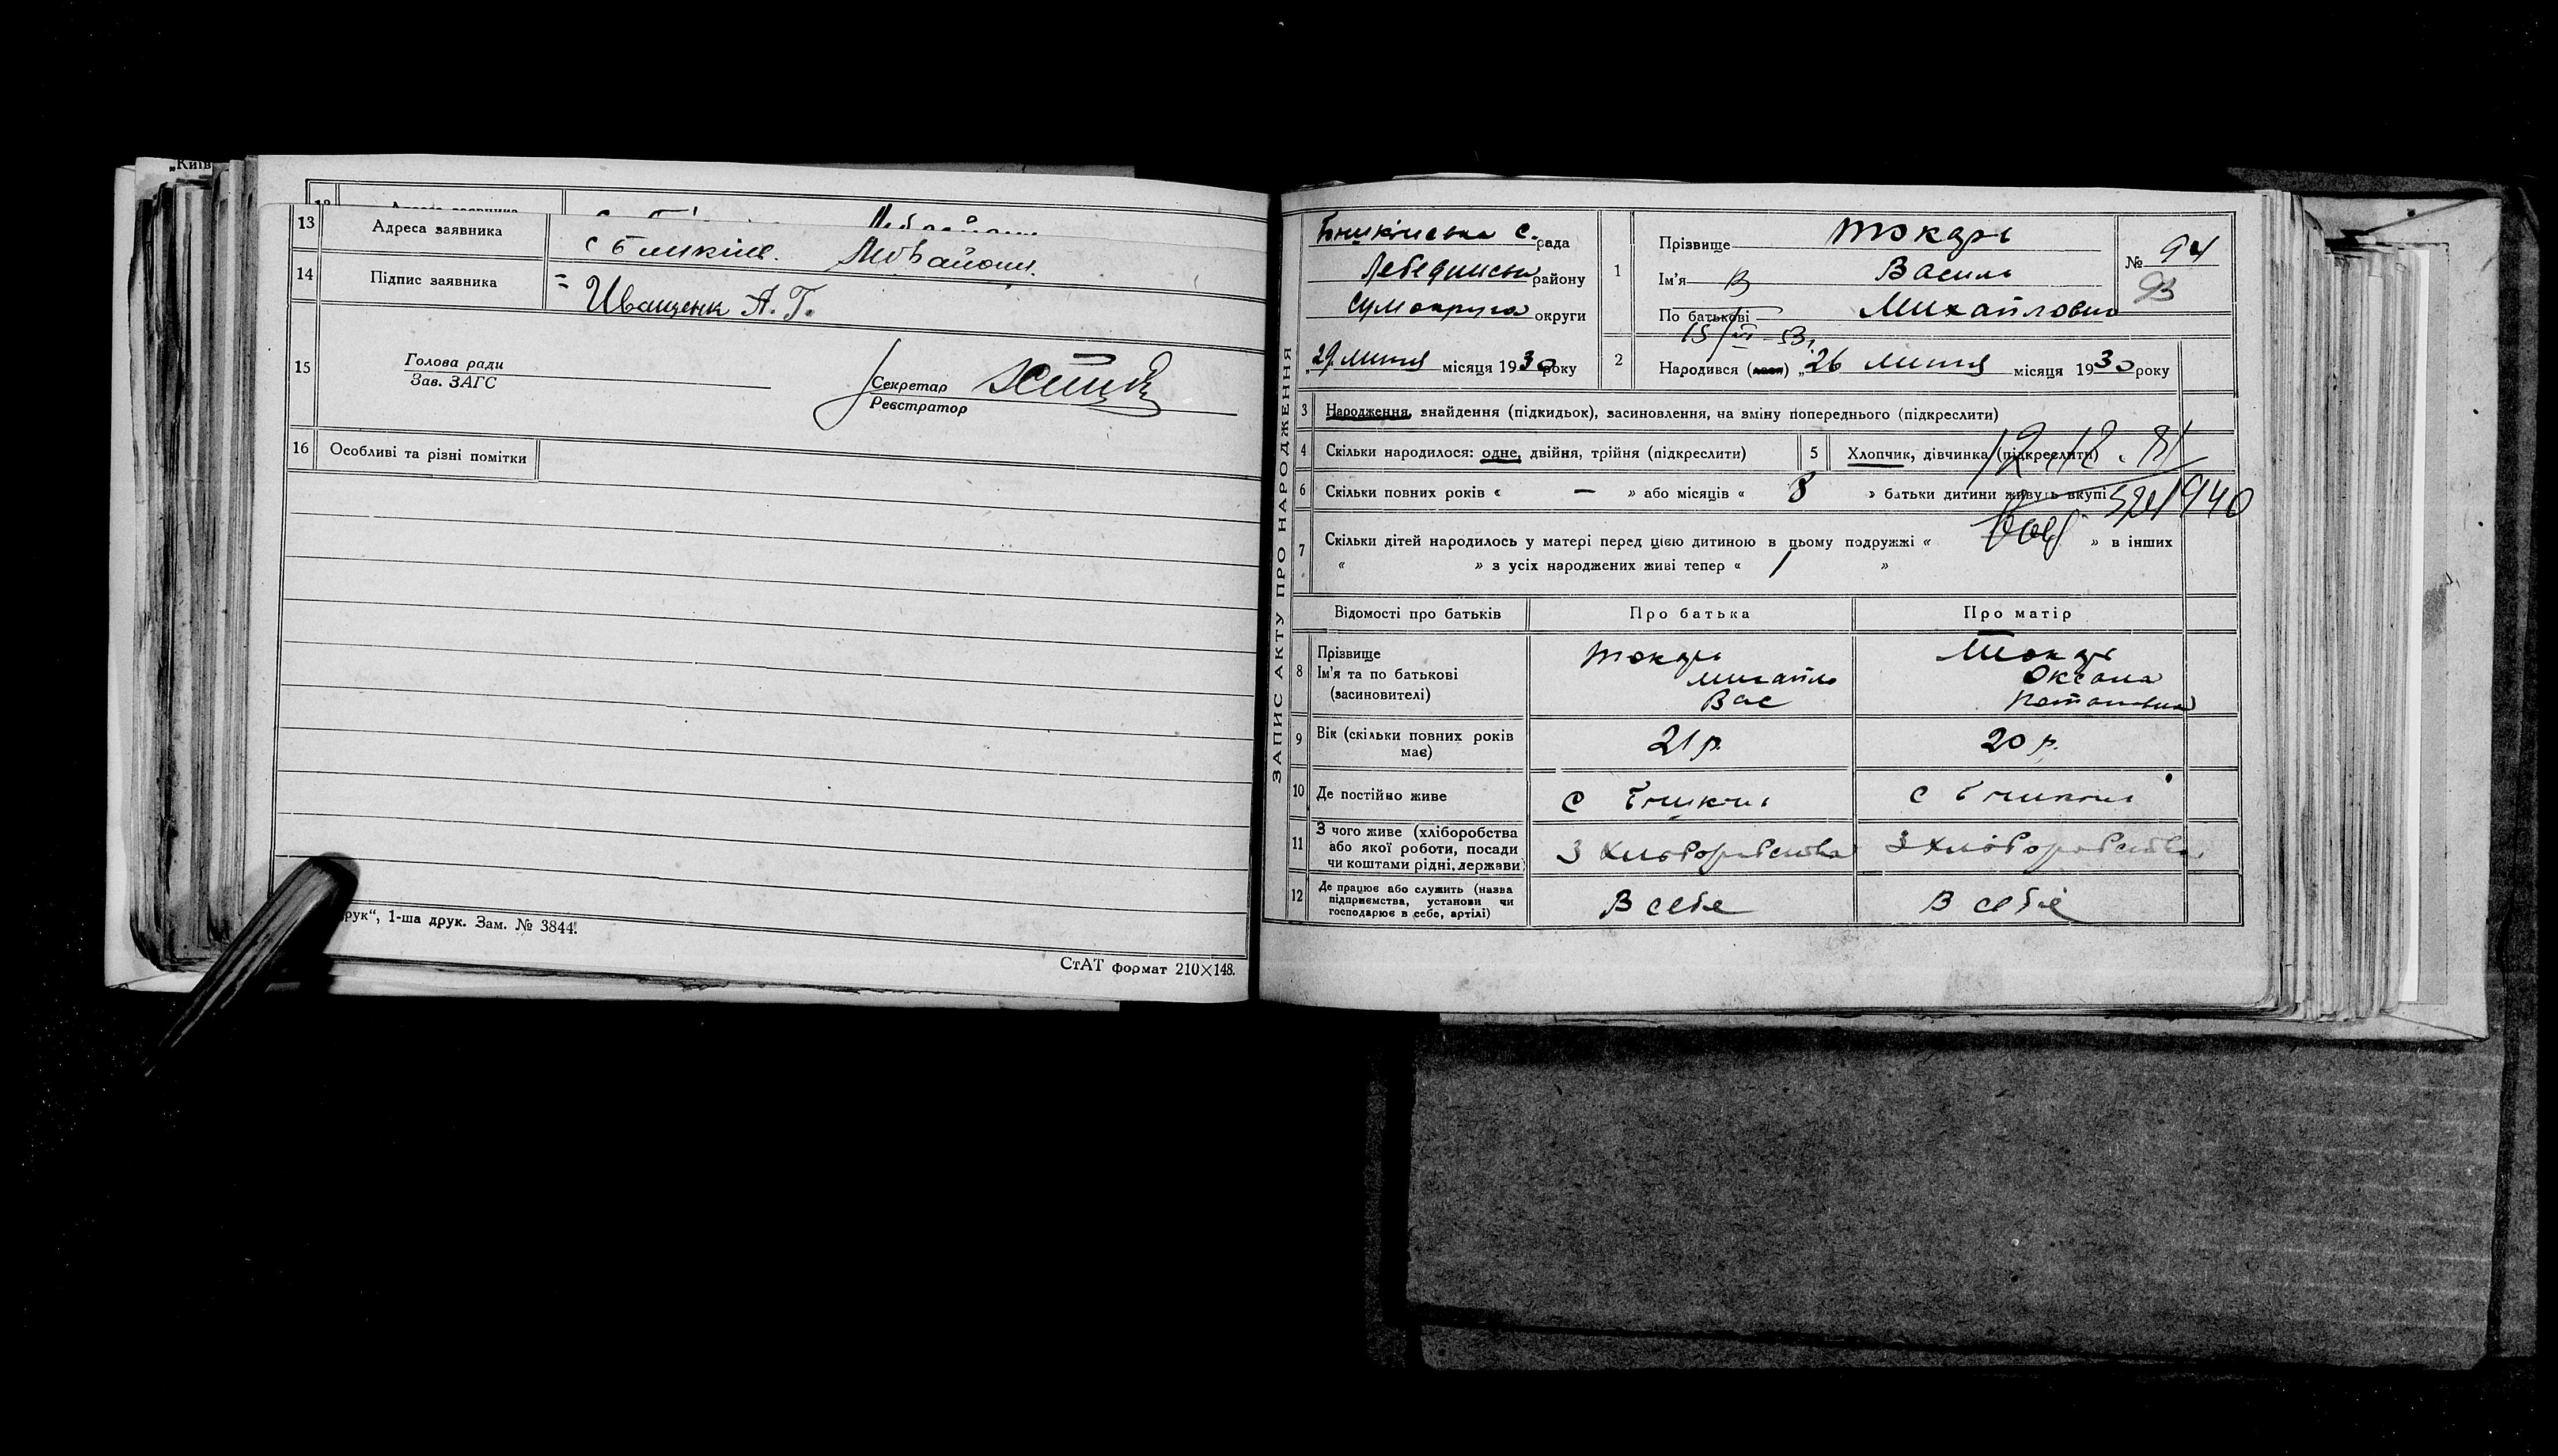 „Київ
13 Адреса заявника с Бишкінь. Лебрайони.
14 Підпис заявника = Иващенк А. Г.
15 Голова ради
Зав. ЗАГС
Секретар
Реєстратор
16 Особливі та різні помітки
рук“, 1-ша друк. Зам. № 3844.
СтАТ формат 210×148.
ЗАПИС АКТУ ПРО НАРОДЖЕННЯ
Бишкінська С. рада
Лебединськ району
Сумокруга округи
„29 липня місяця 1930 року
1 Прізвище Токарь
Ім'я В Василь
По батькові Михайлович
№ 94
93
15/VI-53.
2 Народився (лась) „26 липня місяця 1930 року
3 Народження, знайдення (підкидьок), засиновлення, на зміну попереднього (підкреслити)
4 Скільки народилося: одне, двійня, трійня (підкреслити)
5 Хлопчик, дівчинка (підкреслити)
12.12.81
6 Скільки повних років « — » або місяців « 8 » батьки дитини живуть вкупі
521940
7 Скільки дітей народилось у матері перед цією дитиною в цьому подружжі « » в інших
« » з усіх народжених живі тепер « 1 »
Відомості про батьків Про батька Про матір
8 Прізвище Токарь Токарь
Ім'я та по батькові Михайло Оксана
(засновителі) Вас Потаповна
9 Вік (скільки повних років має) 21 р. 20 р.
10 Де постійно живе с Бишкінь с Бишкінь
11 З чого живе (хліборобства З хліборобства З хліборобства
або якої роботи, посади
чи коштами рідні, держави)
12 Де працює або служить (назва В себе В себе
підприємства, установи чи
господарює в себе, артілі)